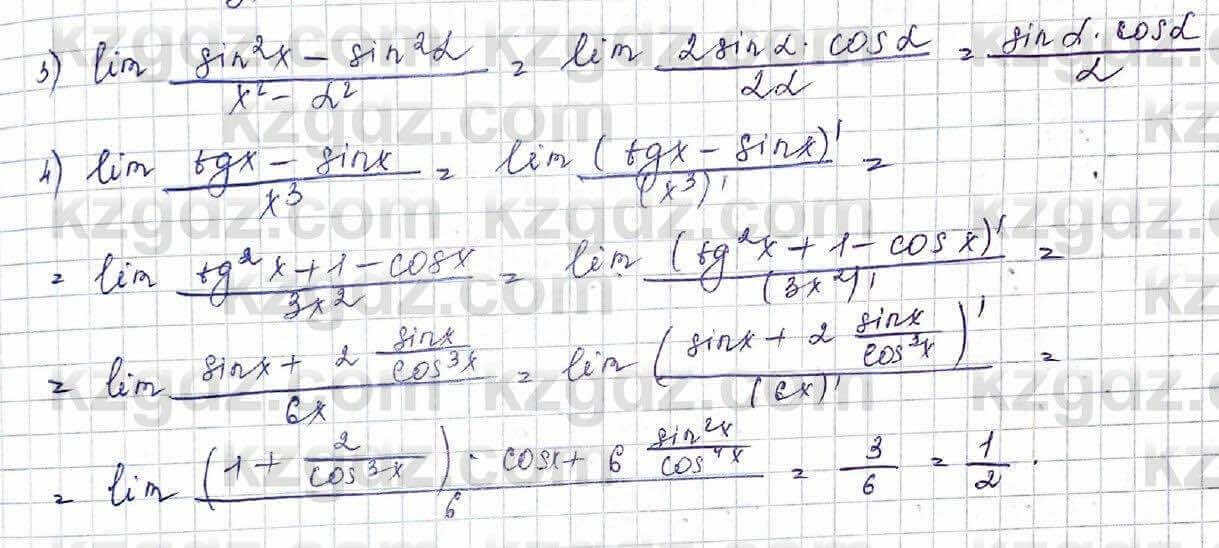 3) lim (sin²x − sin²α)/(x² − α²) = lim (2sinα · cosα)/(2α) = (sinα · cosα)/α
4) lim (tgx − sinx)/x³ = lim (tgx − sinx)'/(x³)' =
= lim (tg²x + 1 − cosx)/(3x²) = lim (tg²x + 1 − cosx)'/(3x²)' =
= lim (sinx + 2 sinx/cos³x)/(6x) = lim (sinx + 2 sinx/cos³x)'/(6x)' =
= lim ((1 + 2/cos³x) · cosx + 6 sin²x/cos⁴x)/6 = 3/6 = 1/2.
kzgdz.com